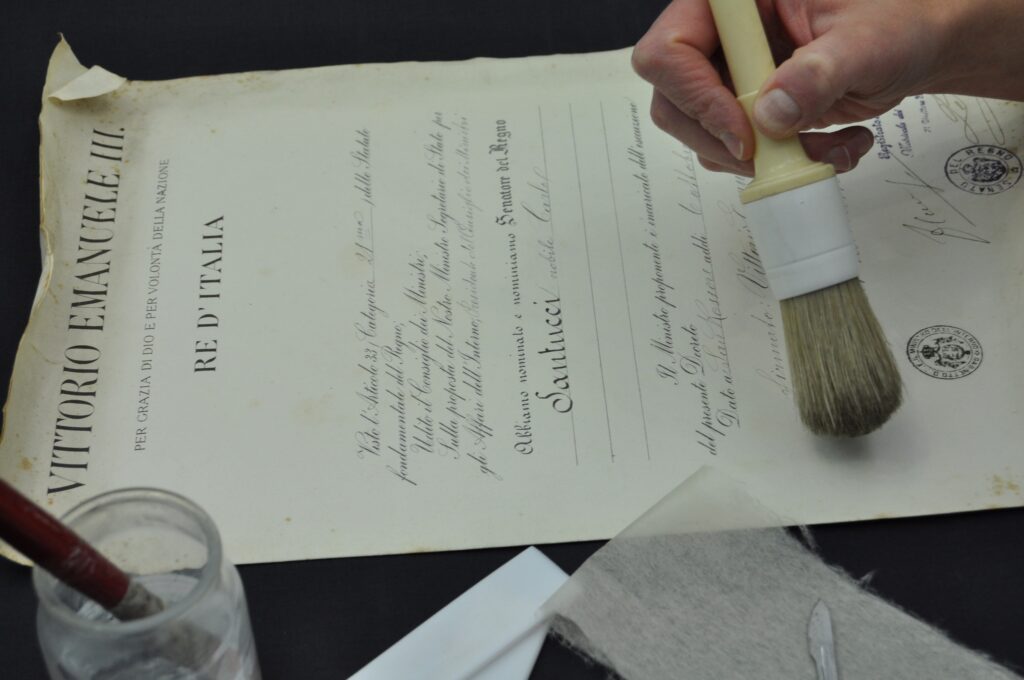 VITTORIO EMANUELE III.
PER GRAZIA DI DIO E PER VOLONTÀ DELLA NAZIONE
RE D'ITALIA
Visto l'Articolo 33, Categoria 21 ma dello Statuto
fondamentale del Regno;
Udito il Consiglio dei Ministri;
Sulla proposta del Nostro Ministro Segretario di Stato per
gli Affari dell'Interno, Presidente del Consiglio dei Ministri
Abbiamo nominato e nominiamo Senatore del Regno
Santucci nobile Carlo
Il Ministro proponente è incaricato dell'esecuzione
del presente Decreto
Dato a San Rossore addì
Firmato: Vittorio
Registrato
SENATO DEL REGNO